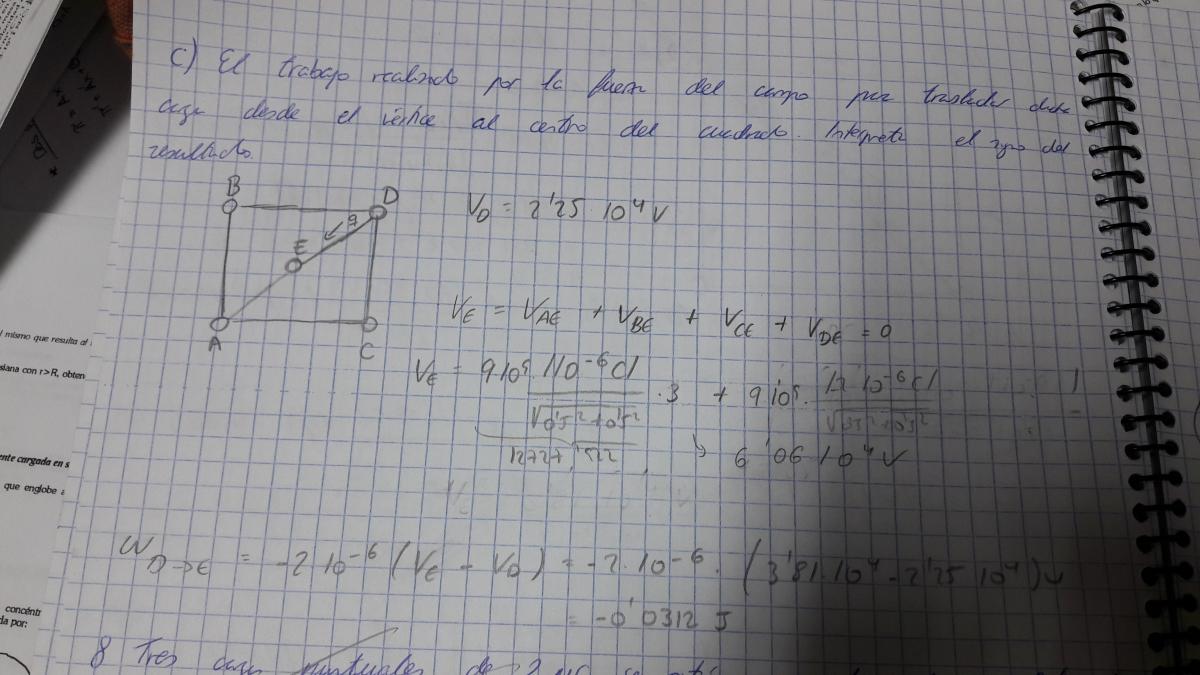 c) El trabajo realizado por la fuerza del campo para trasladar dicha
carga desde el vértice al centro del cuadrado. Interpreta el signo del
resultado.
B
D
q
E
A
C
V_D = 2'25 10⁴ V
V_E = V_AE + V_BE + V_CE + V_DE = 0
V_E = 9 10⁹. 1 10⁻⁶ C/ . 3 + 9 10⁹.
√0'5² + 0'5²
6'06 10⁴ V
W_D→E = -2 10⁻⁶ (V_E - V_D) = -2. 10⁻⁶. (3'81 10⁴ - 2'25 10⁴) V
= -0'0312 J
8 Tres
mismo que resulta al
siana con r>R, obten
ente cargada en s
que englobe a
concéntr
da por: